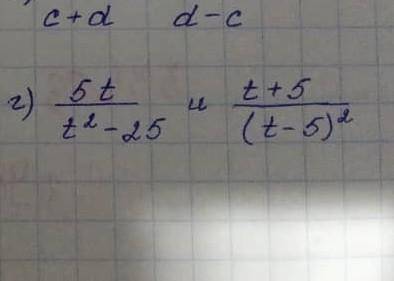 c+d d-c
г) 5t / t² - 25 и t + 5 / (t - 5)²